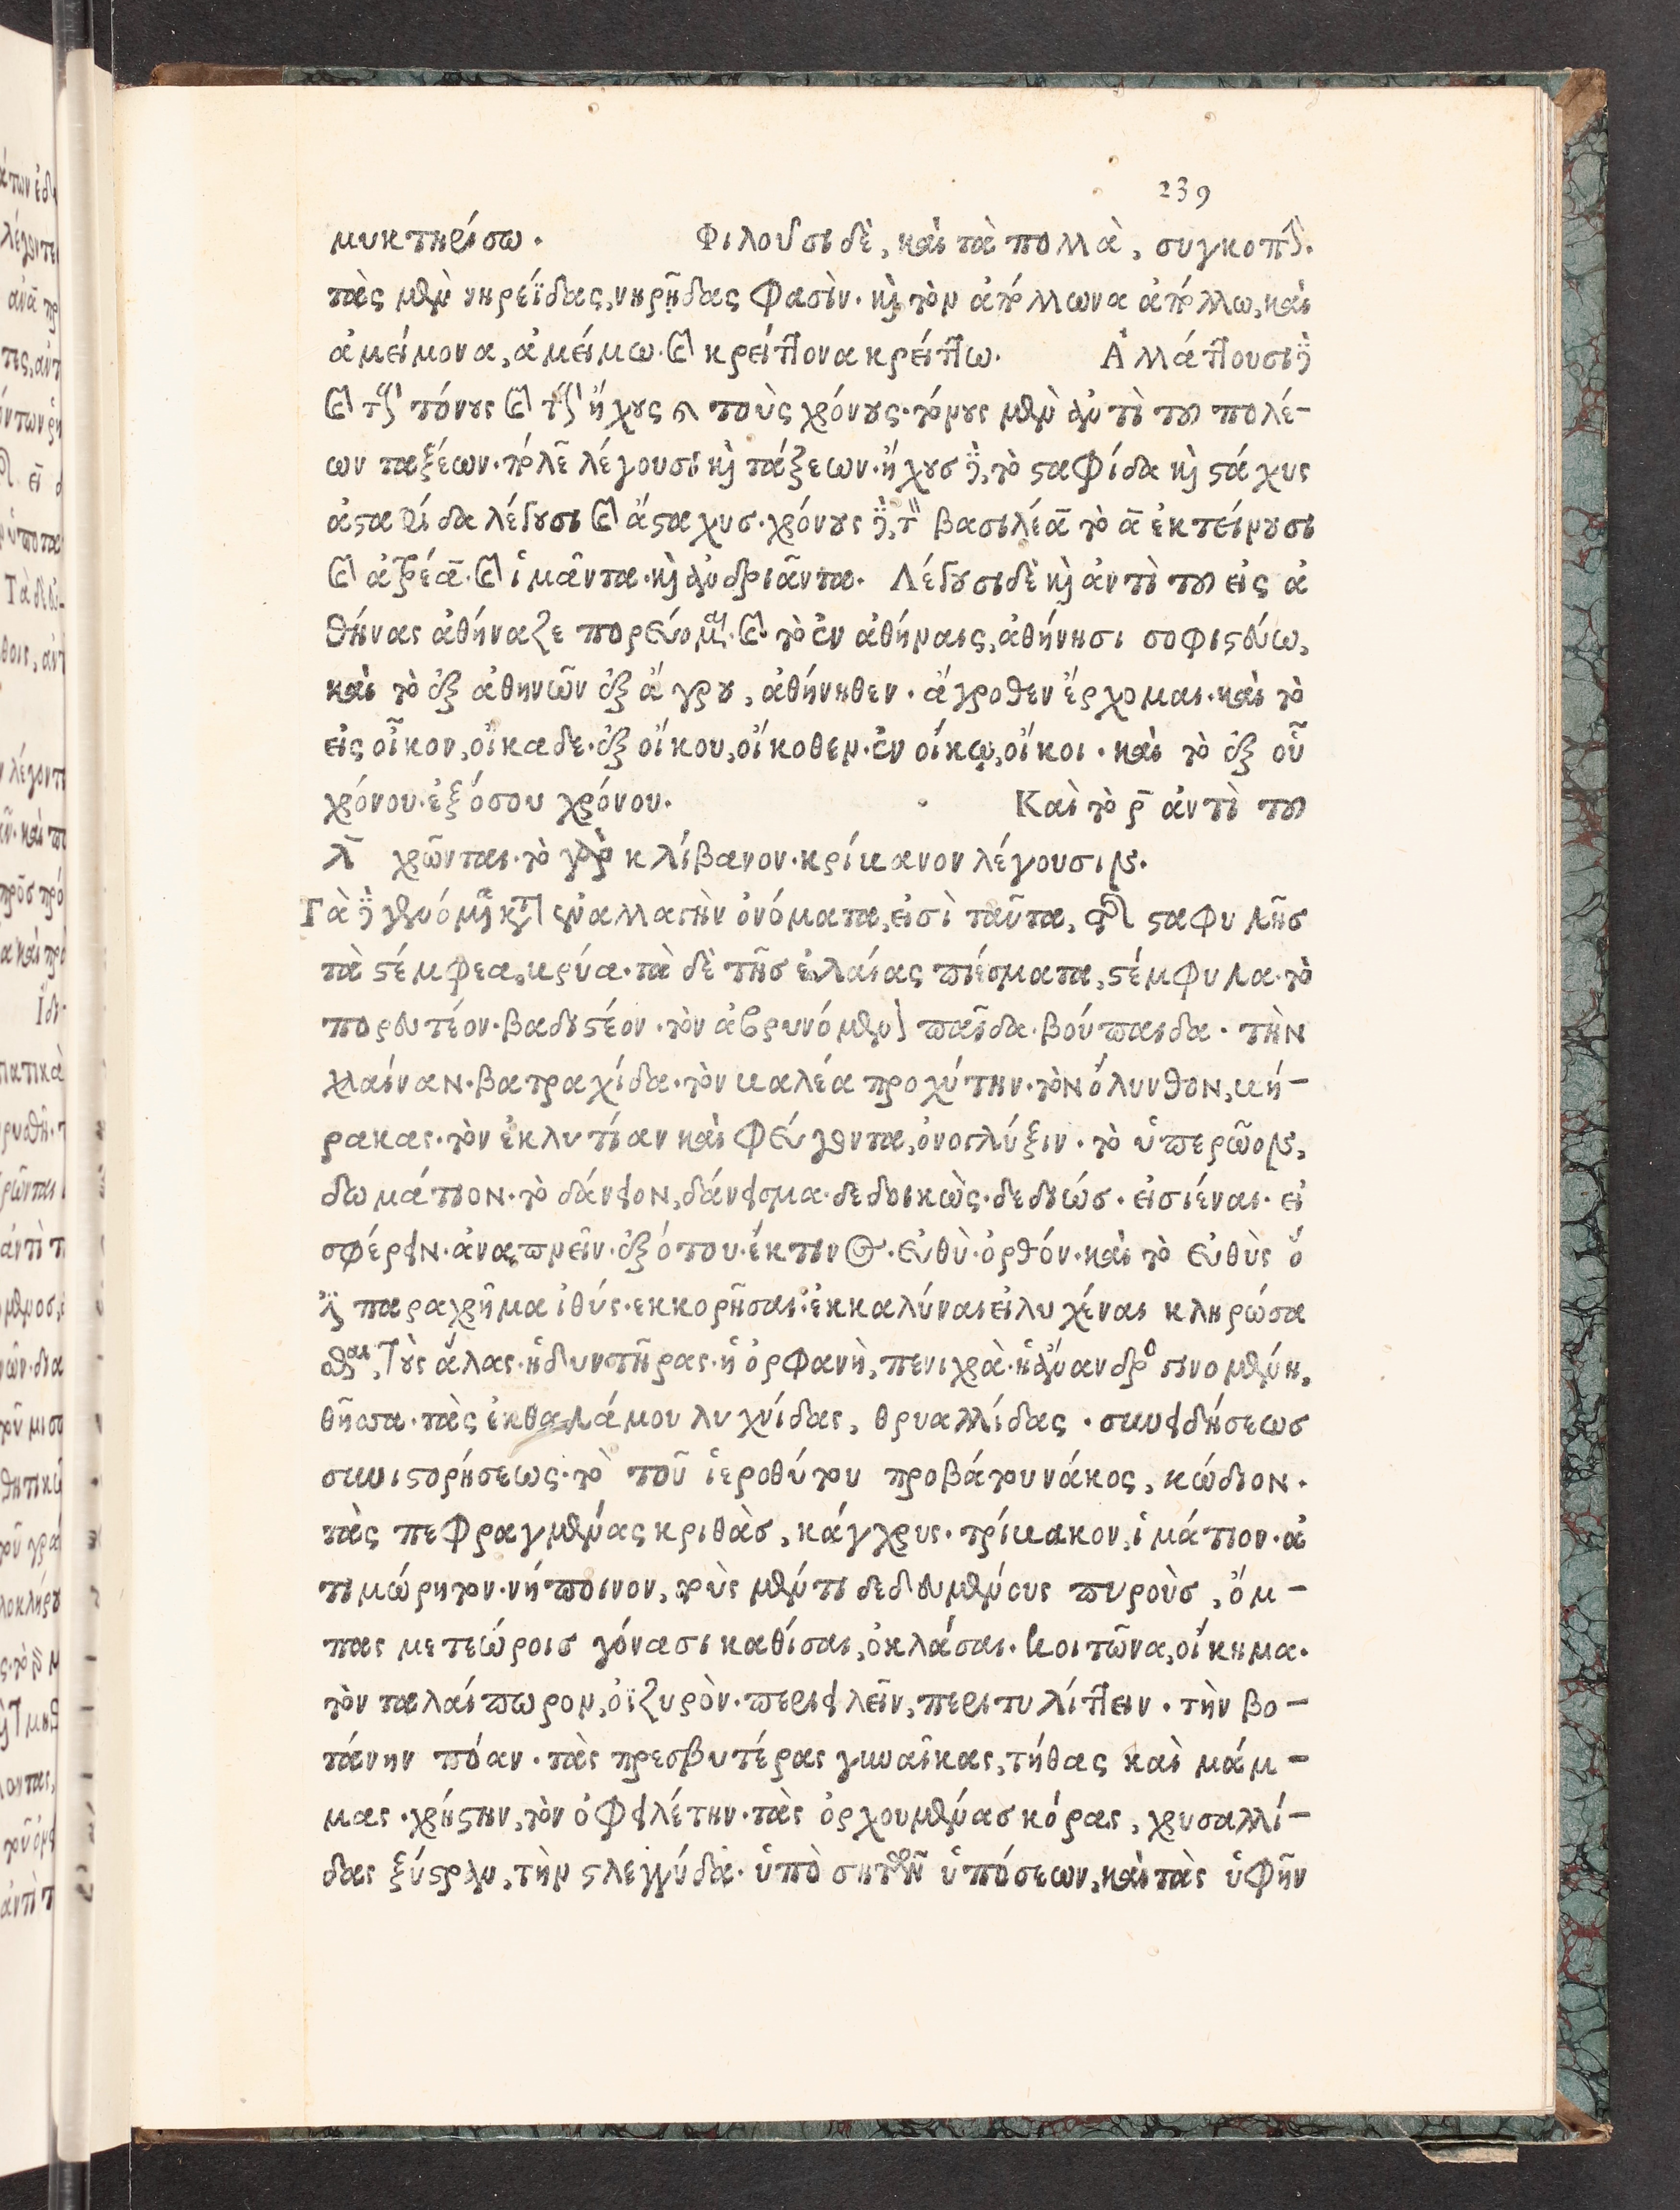 239
μυκτηρίσω. Φιλοῦσι δὲ, καὶ τὰ πολλὰ, συγκοπ
τὰς μὲν νηρέϊδας, νηρῇδας φασὶν. καὶ τὸν ἀπόλλωνα ἀπόλλω, καὶ
ἀμείμονα, ἀμείμω. καὶ κρείττονα κρείττω. Ἀλλάττουσι δὲ
καὶ τοὺς τόνους καὶ τοὺς ἤχους καὶ τοὺς χρόνους. τόνους μὲν ἀντὶ τοῦ πολέ-
ων ταξέων. πόλεων λέγουσι καὶ τάξεων. ἤχους δὲ, τὸ σταφίδα καὶ στάχυς
ἀσταφίδα λέγουσι καὶ ἄσταχυσ. χρόνους δὲ, τοῦ βασιλέα τὸ α ἐκτείνουσι
καὶ ἀξέα. καὶ ἱμάντα. καὶ ἀνδριᾶντα. Λέγουσι δὲ καὶ ἀντὶ τοῦ εἰς ἀ
θήνας ἀθήναζε πορεύομαι. καὶ τὸ ἐν ἀθήναις, ἀθήνησι σοφιστεύω,
καὶ τὸ ἐξ ἀθηνῶν ἐξ ἄγρου, ἀθήνηθεν. ἄγροθεν ἔρχομαι. καὶ τὸ
εἰς οἶκον, οἴκαδε. ἐξ οἴκου, οἴκοθεν. ἐν οἴκῳ, οἴκοι. καὶ τὸ ἐξ οὗ
χρόνου. ἐξ ὅσου χρόνου. Καὶ τὸ ρ ἀντὶ τοῦ
λ χρῶνται. τὸ γὰρ κλίβανον. κρίκανον λέγουσιν.
Τὰ δὲ γενόμενα κατ ἐναλλαγὴν ὀνόματα, εἰσὶ ταῦτα, σταφυλῆσ
τὰ στέμφεα, κρύα. τὰ δὲ τῆσ ἐλαίας πιέσματα, στέμφυλα. τὸ
πορευτέον. βαδυστέον. τὸν ἁβρυνόμενον παῖδα. βούπαιδα. τὴν
χλαίναν. βατραχίδα. τὸν καλέα προχύτην. τὸν ὄλυνθον, κή-
ρακας. τὸν ἐκλυτίαν καὶ φεύγοντα, ὀνογλύξιν. τὸ ὑπερῶον,
δωμάτιον. τὸ δάνειον, δάνεισμα. δεδοικὼς. δεδιώσ. εἰσιέναι. εἰ
σφέρειν. ἀναπνεῖν. ἐξ ὅτου. ἐκ τίνος. εὐθὺ. ὀρθόν. καὶ τὸ εὐθὺς ὅ
ἐστι παραχρῆμα ἰθύς. εκκορῆσαι. ἐκκαλύναι εἰλυχέναι κληρώσα
σθαι, τοὺς ἅλας. ἡδυντῆρας. ἡ ὀρφανὴ, πενιχρὰ. ἡ ἄνανδρος τινομένη,
θῆσσα. τὰς ἐκθαλάμου λυχνίδας, θρυαλλίδας. συνειδήσεωσ
συνιστορήσεως. τὸ τοῦ ἱεροθύτου προβάτου νάκος, κώδιον.
τὰς πεφραγμένας κριθὰσ, κάγχρυς. τρίκακον, ἱμάτιον. ἀ
τιμώρητον. νήποινον, τοὺς μέντι δεδευμένους πυροὺσ, ὄμ-
πας μετεώροισ γόνασι καθίσαι, ὀκλάσαι. κοιτῶνα, οἴκημα.
τὸν ταλαίπωρον, οἰζυρὸν. περιειλεῖν, περιτυλίττειν. τὴν βο-
τάνην πόαν. τὰς πρεσβυτέρας γυναῖκας, τήθας καὶ μάμ-
μας. χρήστην, τὸν ὀφειλέτην. τὰς ὀρχουμένασ κόρας, χρυσαλλί-
δας ξύστραν, τὴν στλεγγύδα. ὑπὸ σητῶν ὑπόσεων, καὶ τὰς ὑφῆν